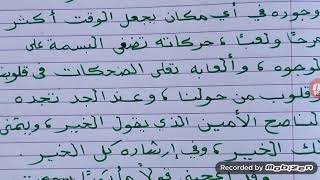 وجوده في أي مكان يجعل الوقت أكثر
مرحًا ولعبًا، حركاته تضفي البسمة على
الوجوه، وألعابه تلقى الضحكات في قلوبنا
وقلوب من حولنا، وعند الجد تجده
لناصح الأمين الذي يقول الخير، ويتمنى
لك الخير، وفي إرشاده كل الخير.
Recorded by
Mobizen